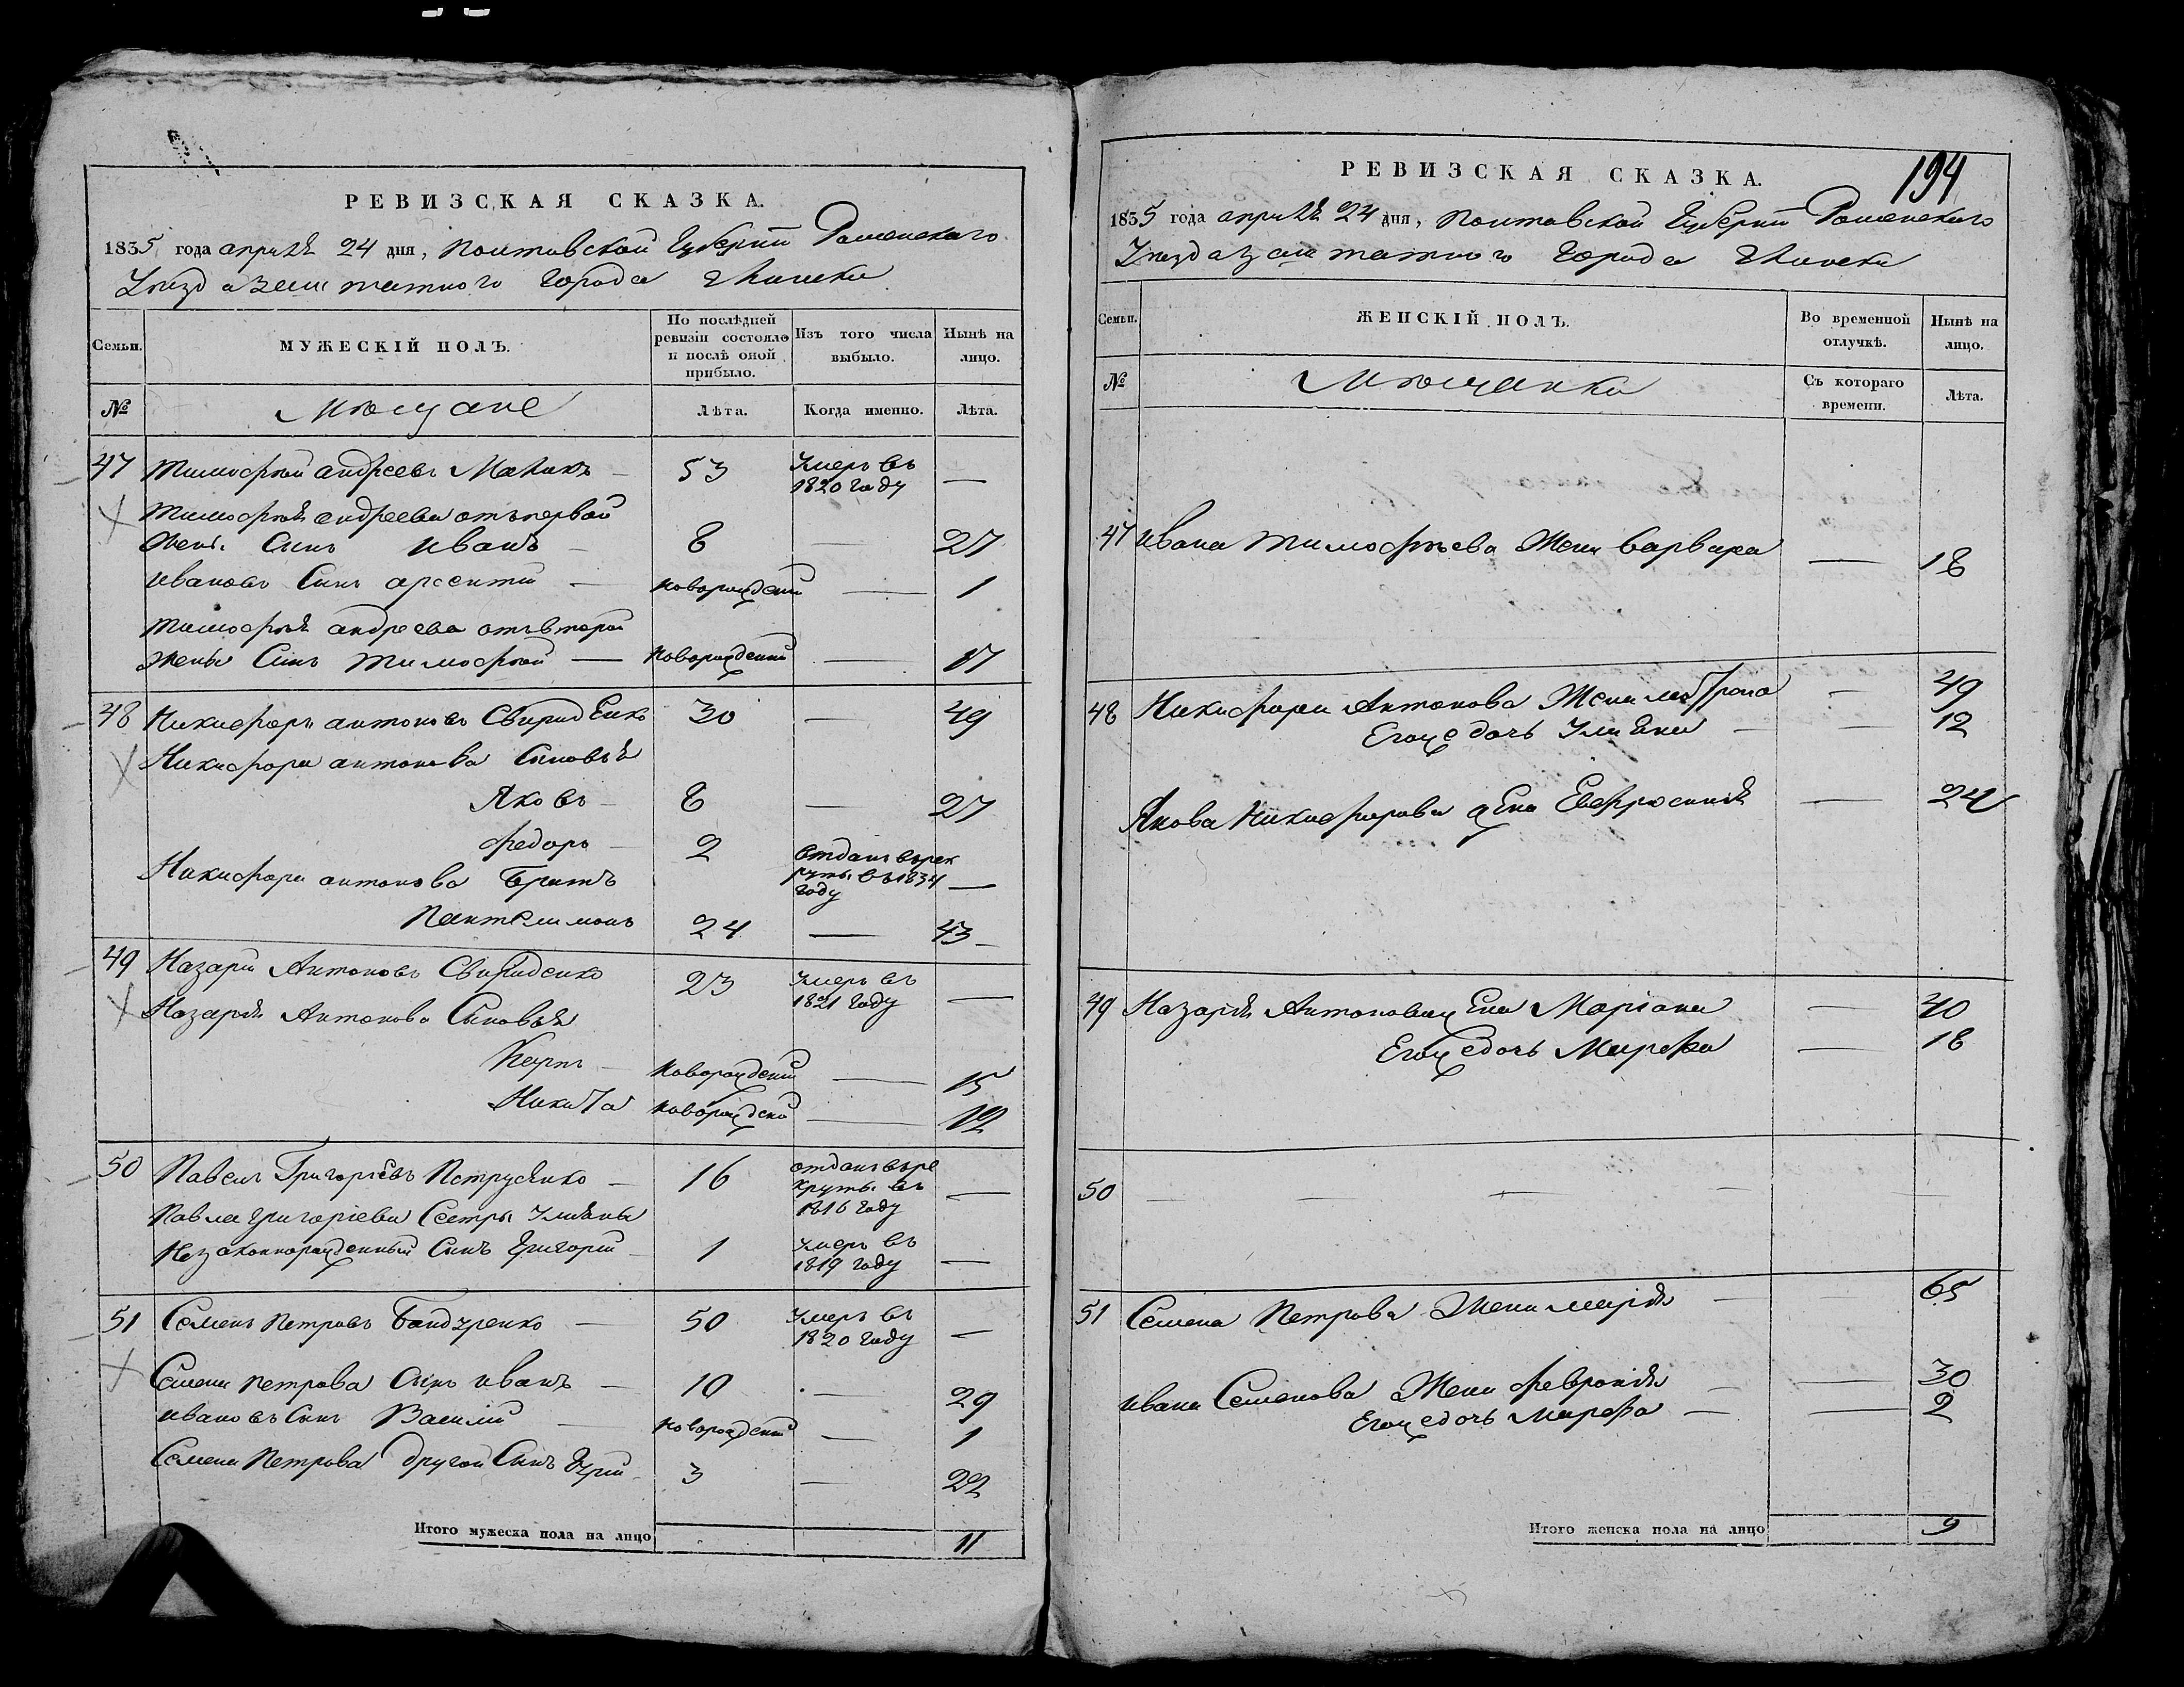 РЕВИЗСКАЯ СКАЗКА.
1835 года апрѣля 24 дня, Полтавской Губерніи Роменскаго
Уѣзда заштатного города Глинска
Семьи.
МУЖЕСКІЙ ПОЛЪ.
По послѣдней ревизіи состояло и послѣ оной прибыло.
Изъ того числа выбыло.
Нынѣ на лицо.
№
Мѣщане
Лѣта.
Когда именно.
Лѣта.
47 Тимофѣй андреевъ Маликъ — 53 Умеръ въ 1820 году —
Тимофѣя андреева отъ первой
жены Сынъ иванъ — 8 — 27
ивановъ Сынъ арсентій — новорожденій — 1
Тимофѣя андреева отъ второй
жены Сынъ Тимофѣй — новорожденій — 17
48 Никифоръ антоновъ Свириденко 30 — 49
Никифора антонова Сыновья
Яковъ — 8 — 27
Федоръ — 2 отданъ въ рекруты въ 1834 году —
Никифора антонова Братъ
Пантелимонъ 24 — 43
49 Назарій Антоновъ Свириденко 23 Умеръ въ 1821 году —
Назарія Антонова Сыновья
Карпъ — новорожденій — 15
Никита новорожденой — 12
50 Павелъ Григоріевъ Петрусенко — 16 отданъ въ рекруты въ 1816 году —
Павла Григоріева Сестры Ульяны
Незаконнорожденный Сынъ Григорій — 1 Умеръ въ 1819 году —
51 Семенъ Петровъ Бондаренко — 50 Умеръ въ 1820 году —
Семена Петрова Сынъ иванъ — 10 — 29
ивановъ Сынъ Василій — новорожденій — 1
Семена Петрова другой Сынъ 3 — 22
Итого мужеска пола на лицо 11
194
РЕВИЗСКАЯ СКАЗКА.
1835 года апрѣля 24 дня, Полтавской Губерніи Роменскаго
Уѣзда заштатного города Глинска
Семьи.
ЖЕНСКІЙ ПОЛЪ.
Во временной отлучкѣ.
Нынѣ на лицо.
№
Мѣщанки
Съ котораго времени.
Лѣта.
47 ивана Тимофѣева Жена варвара — 18
48 Никифора Антонова Жена матрона — 49
Егожедочь Ульяна — — 12
Якова Никифорова жена Евфросинія — 24
49 Назарія Антонова жена Маріана — 40
Егожедочь Марфа — 18
50 — — — —
51 Семена Петрова Жена марія — — 65
ивана Семенова Жена февронія — — 30
Егожедочь марфа — — 2
Итого женска пола на лицо 9